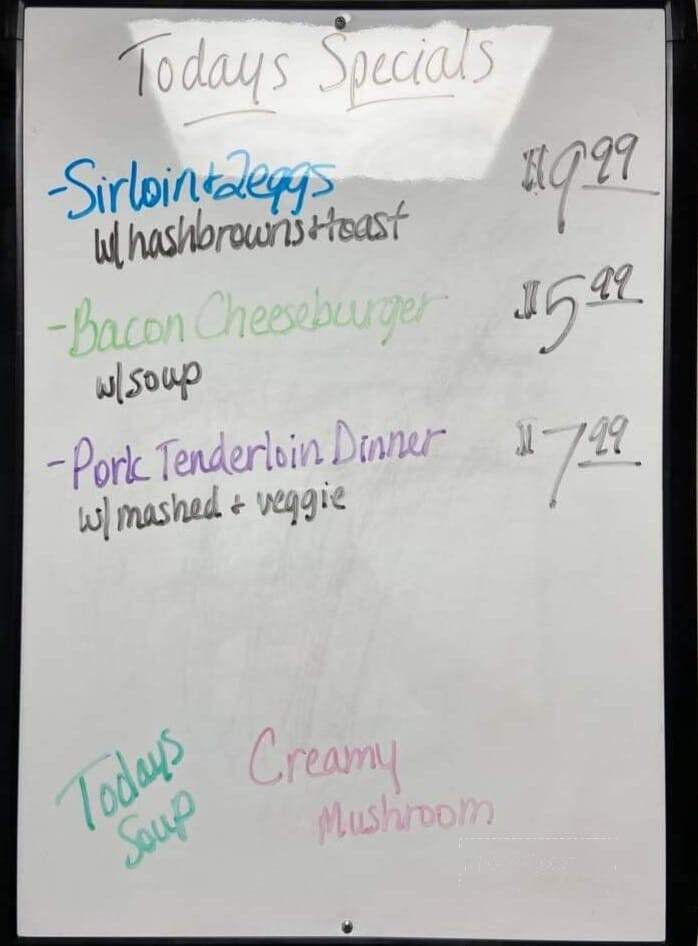 Todays Specials
-Sirloin+2eggs $9.99
w/hashbrowns+toast
-Bacon Cheeseburger $5.99
w/soup
-Pork Tenderloin Dinner $7.99
w/mashed + veggie
Todays Creamy
Soup Mushroom